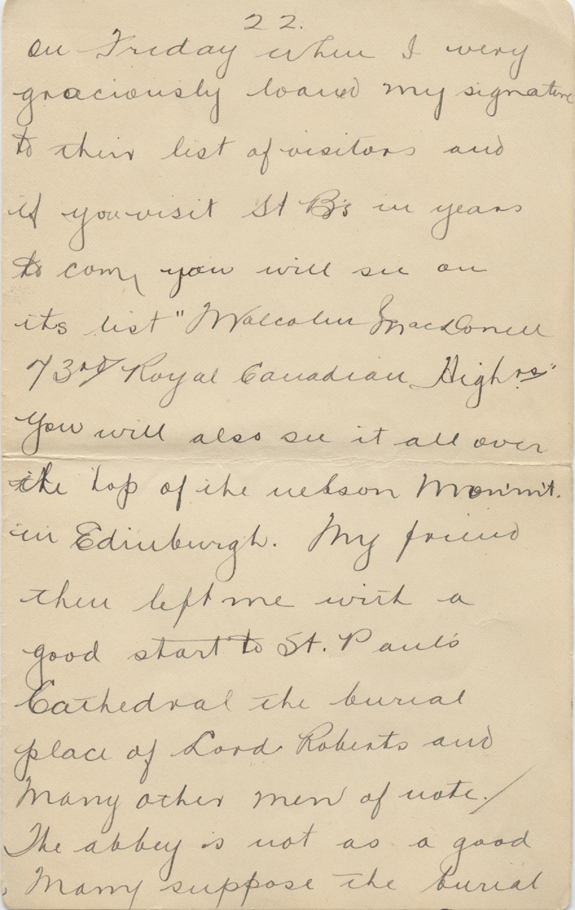 22.
on Friday when I very
graciously loaned my signature
to their list of visitors and
if you visit St B's in years
to come, you will see on
its list "Malcolm MacDonell
73rd Royal Canadian High.rs"
You will also see it all over
the top of the nelson Monm't.
in Edinburgh. My friend
then left me with a
good start to St. Paul's
Cathedral the burial
place of Lord Roberts and
Many other men of note./
The abbey is not as a good
Many suppose the burial